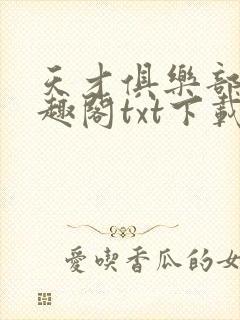 天才俱樂部
趣閣txt下載
愛喫香瓜的女